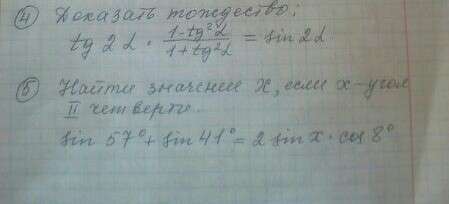 ④ Доказать тождество:
tg 2α · (1-tg²α)/(1+tg²α) = sin 2α
⑤ Найти значение X, если x-угол
II четверти.
sin 57° + sin 41° = 2 sin x · cos 8°